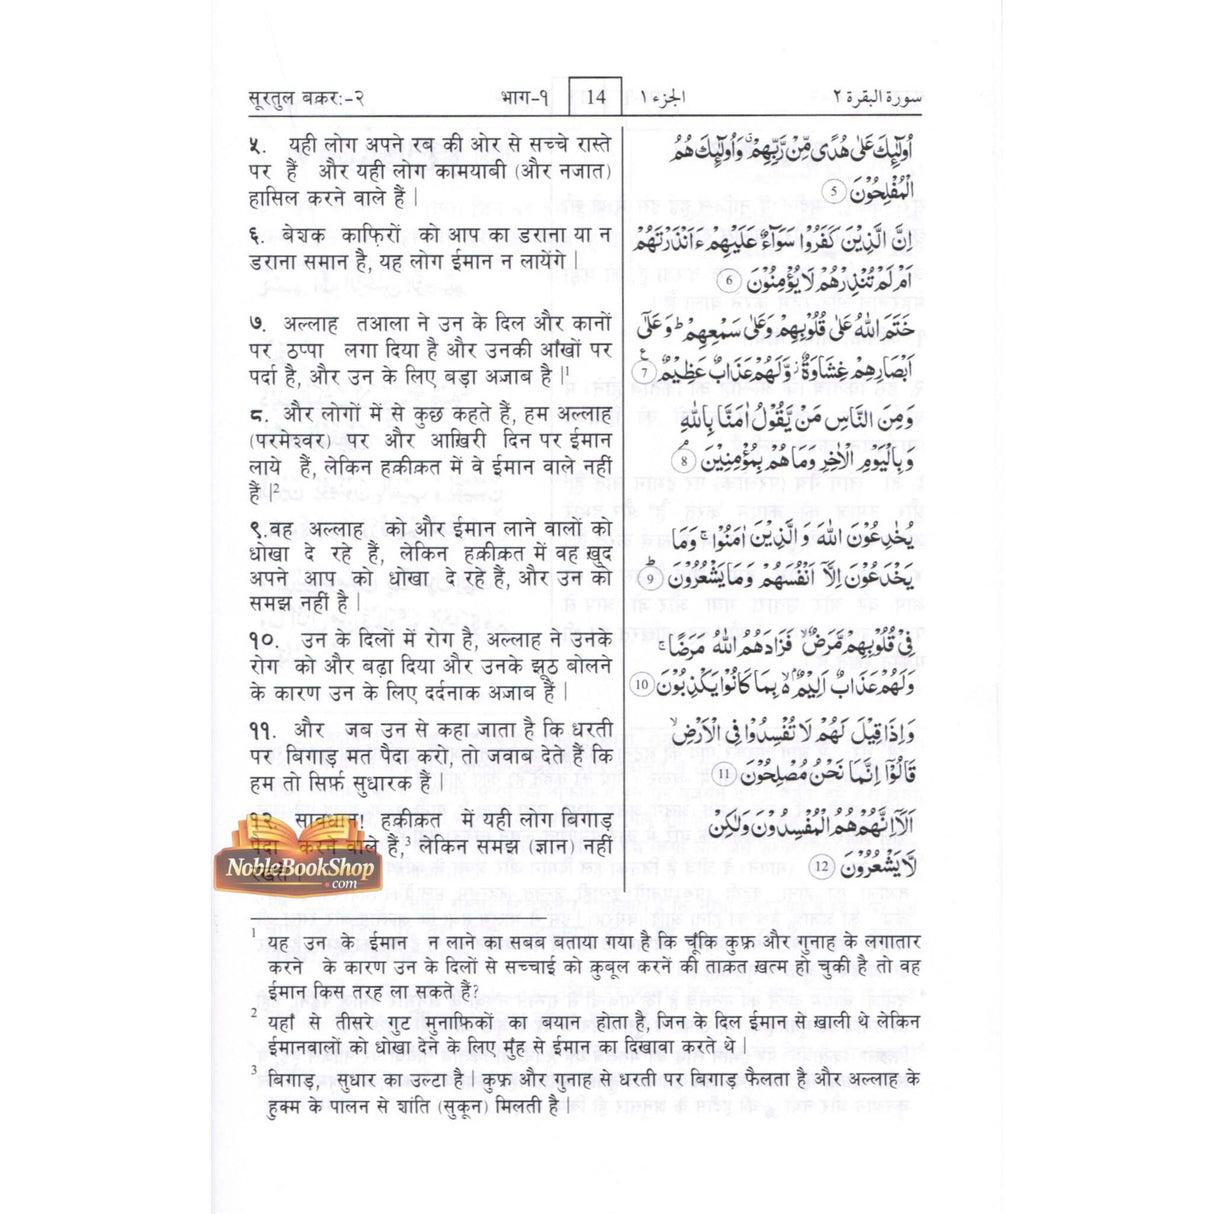 सूरतुल बक़रः-२ भाग-१ 14 الجزء ١ سورة البقرة ٢
५. यही लोग अपने रब की ओर से सच्चे रास्ते
पर हैं और यही लोग कामयाबी (और नजात)
हासिल करने वाले हैं |
६. बेशक काफ़िरों को आप का डराना या न
डराना समान है, यह लोग ईमान न लायेंगे |
७. अल्लाह तआला ने उन के दिल और कानों
पर ठप्पा लगा दिया है और उनकी आंखों पर
पर्दा है, और उन के लिए बड़ा अज़ाब है |¹
८. और लोगों में से कुछ कहते हैं, हम अल्लाह
(परमेश्वर) पर और आख़िरी दिन पर ईमान
लाये हैं, लेकिन हक़ीक़त में वे ईमान वाले नहीं
हैं |²
९.वह अल्लाह को और ईमान लाने वालों को
धोखा दे रहे हैं, लेकिन हक़ीक़त में वह ख़ुद
अपने आप को धोखा दे रहे हैं, और उन को
समझ नहीं है |
१०. उन के दिलों में रोग है, अल्लाह ने उनके
रोग को और बढ़ा दिया और उनके झूठ बोलने
के कारण उन के लिए दर्दनाक अज़ाब हैं |
११. और जब उन से कहा जाता है कि धरती
पर बिगाड़ मत पैदा करो, तो जवाब देते हैं कि
हम तो सिर्फ़ सुधारक हैं |
१२. सावधान! हक़ीक़त में यही लोग बिगाड़
पैदा करने वाले हैं,³ लेकिन समझ (ज्ञान) नहीं
रखते |
اُولٰٓئِكَ عَلٰى هُدًى مِّنْ رَّبِّهِمْ ۙ وَاُولٰٓئِكَ هُمُ
الْمُفْلِحُوْنَ 5
اِنَّ الَّذِيْنَ كَفَرُوْا سَوَآءٌ عَلَيْهِمْ ءَاَنْذَرْتَهُمْ
اَمْ لَمْ تُنْذِرْهُمْ لَا يُؤْمِنُوْنَ 6
خَتَمَ اللّٰهُ عَلٰى قُلُوْبِهِمْ وَعَلٰى سَمْعِهِمْ ؕ وَعَلٰٓى
اَبْصَارِهِمْ غِشَاوَةٌ ؗ وَّلَهُمْ عَذَابٌ عَظِيْمٌ 7
وَمِنَ النَّاسِ مَنْ يَّقُوْلُ اٰمَنَّا بِاللّٰهِ
وَبِالْيَوْمِ الْاٰخِرِ وَمَا هُمْ بِمُؤْمِنِيْنَ 8
يُخٰدِعُوْنَ اللّٰهَ وَالَّذِيْنَ اٰمَنُوْا ۚ وَمَا
يَخْدَعُوْنَ اِلَّآ اَنْفُسَهُمْ وَمَا يَشْعُرُوْنَ 9
فِيْ قُلُوْبِهِمْ مَّرَضٌ ۙ فَزَادَهُمُ اللّٰهُ مَرَضًا ۚ
وَلَهُمْ عَذَابٌ اَلِيْمٌ ۢ ۙ بِمَا كَانُوْا يَكْذِبُوْنَ 10
وَاِذَا قِيْلَ لَهُمْ لَا تُفْسِدُوْا فِى الْاَرْضِ ۙ
قَالُوْٓا اِنَّمَا نَحْنُ مُصْلِحُوْنَ 11
اَلَآ اِنَّهُمْ هُمُ الْمُفْسِدُوْنَ وَلٰكِنْ
لَّا يَشْعُرُوْنَ 12
NobleBookShop
.com
¹ यह उन के ईमान न लाने का सबब बताया गया है कि चूंकि कुफ़्र और गुनाह के लगातार
करने के कारण उन के दिलों से सच्चाई को क़ुबूल करनें की ताक़त ख़त्म हो चुकी है तो वह
ईमान किस तरह ला सकते हैं?
² यहाँ से तीसरे गुट मुनाफ़िकों का बयान होता है, जिन के दिल ईमान से ख़ाली थे लेकिन
ईमानवालों को धोखा देने के लिए मुंह से ईमान का दिखावा करते थे |
³ बिगाड़, सुधार का उल्टा है | कुफ़्र और गुनाह से धरती पर बिगाड़ फैलता है और अल्लाह के
हुक्म के पालन से शांति (सुकून) मिलती है |